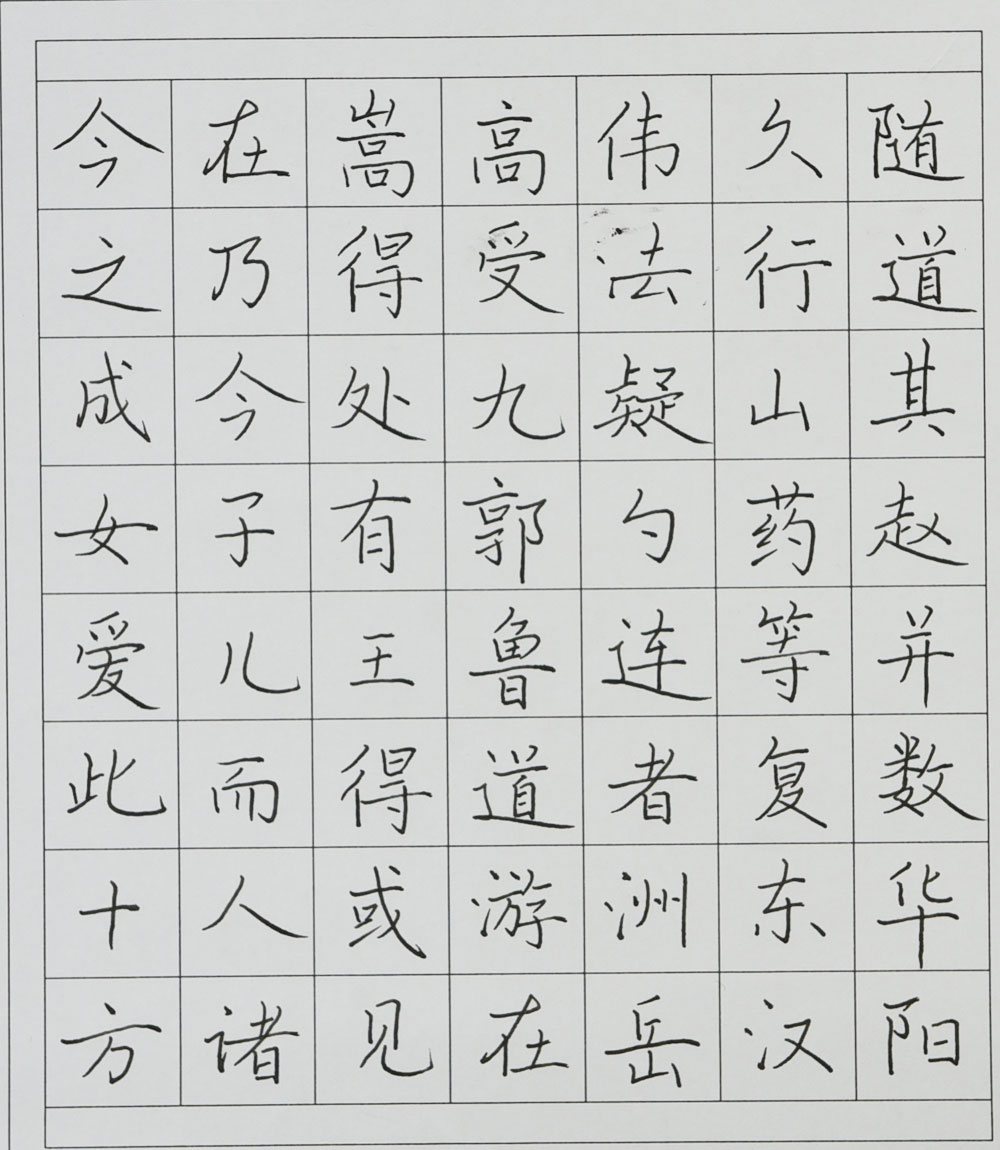 今在嵩高伟久随
之乃得受法行道
成今处九疑山其
女子有郭勺药赵
爱儿王鲁连等并
此而得道者复数
十人或游洲东华
方诸见在岳汉阳